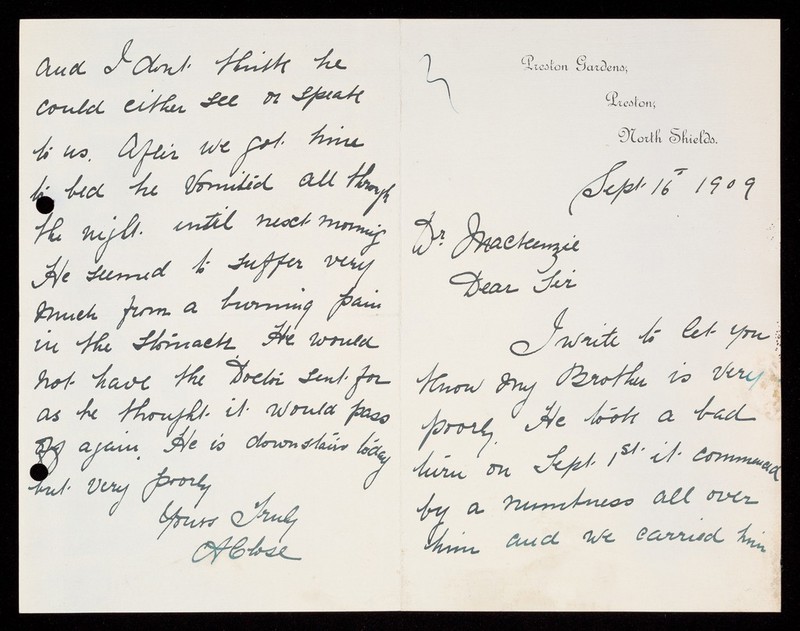 Preston Gardens,
Preston,
North Shields.
Sept 16th 1909
Dr. Mackenzie
Dear Sir
I write to let you
know my Brother is very
poorly. He took a bad
turn on Sept 1st it commenced
by a numbness all over
him and we carried him
and I dont think he
could either see or speak
to us. After we got him
to bed he vomited all through
the night until next morning
He seemed to suffer very
much from a burning pain
in the stomach He would
not have the Doctor sent for
as he thought it would pass
off again. He is downstairs today
but very poorly
Yours Truly
A Close